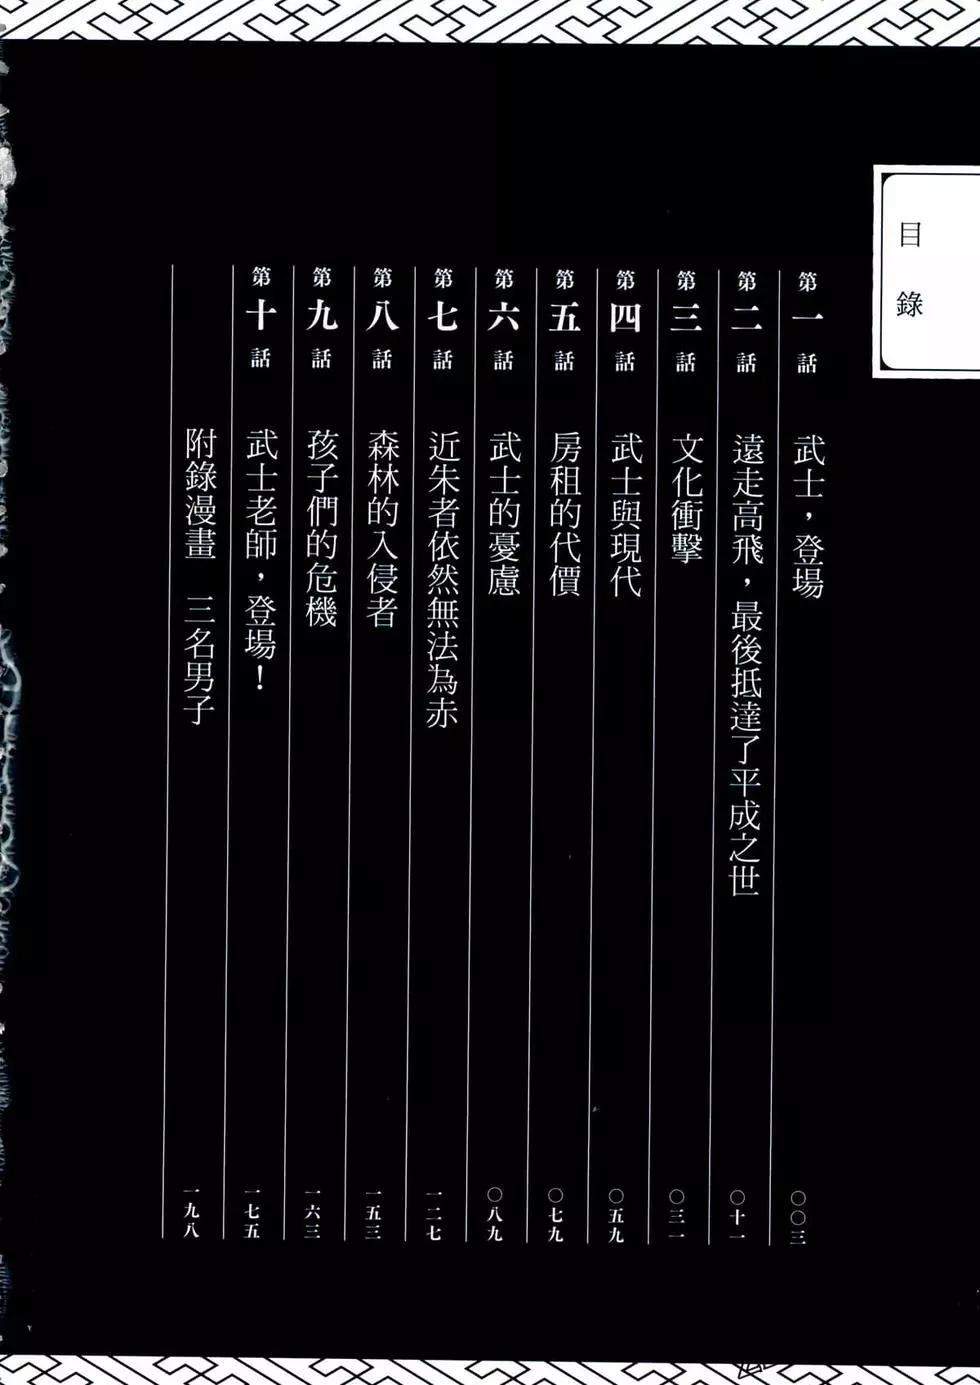 目錄
第一話 武士，登場 〇〇三
第二話 遠走高飛，最後抵達了平成之世 〇十一
第三話 文化衝擊 〇三一
第四話 武士與現代 〇五九
第五話 房租的代價 〇七九
第六話 武士的憂慮 〇八九
第七話 近朱者依然無法為赤 一二七
第八話 森林的入侵者 一五三
第九話 孩子們的危機 一六三
第十話 武士老師，登場！ 一七五
附錄漫畫 三名男子 一九八